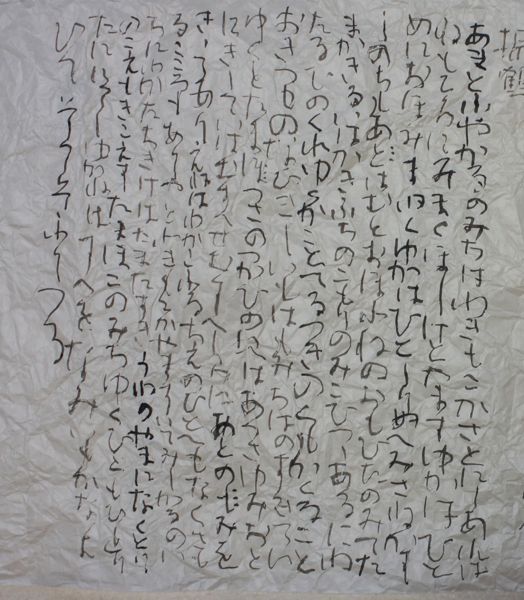 あまとふやかるのみちはわきもこかさとにしあれは
ねもころにみまくほしけとやますゆかはひと
めにおほみまねくゆかはひとしりぬへみさねかす
のちもあはむとおほふねのおもひたのみてた
まかきるいはかきふちのこもりのみこひつゝあるにわ
たるひのくれゆくかことてるつきのくもかくること
おきつものなひきしいもはもみちはのすきてい
ゆくとたまつさのつかひのいへはあつさゆみおと
にきゝていはむすへせむすへしらにおとのみを
きゝてありえねはわかこふるちえのひとへもなくさも
るこころもありやとわきもこかやますいてみしかるのい
ちにわかたちきけはたまたすきうねひのやまになくとり
のこえもきこえすたまほこのみちゆくひともひとり
たににてしゆかねはすへをなみいもかなよ
ひてそてそふりつる